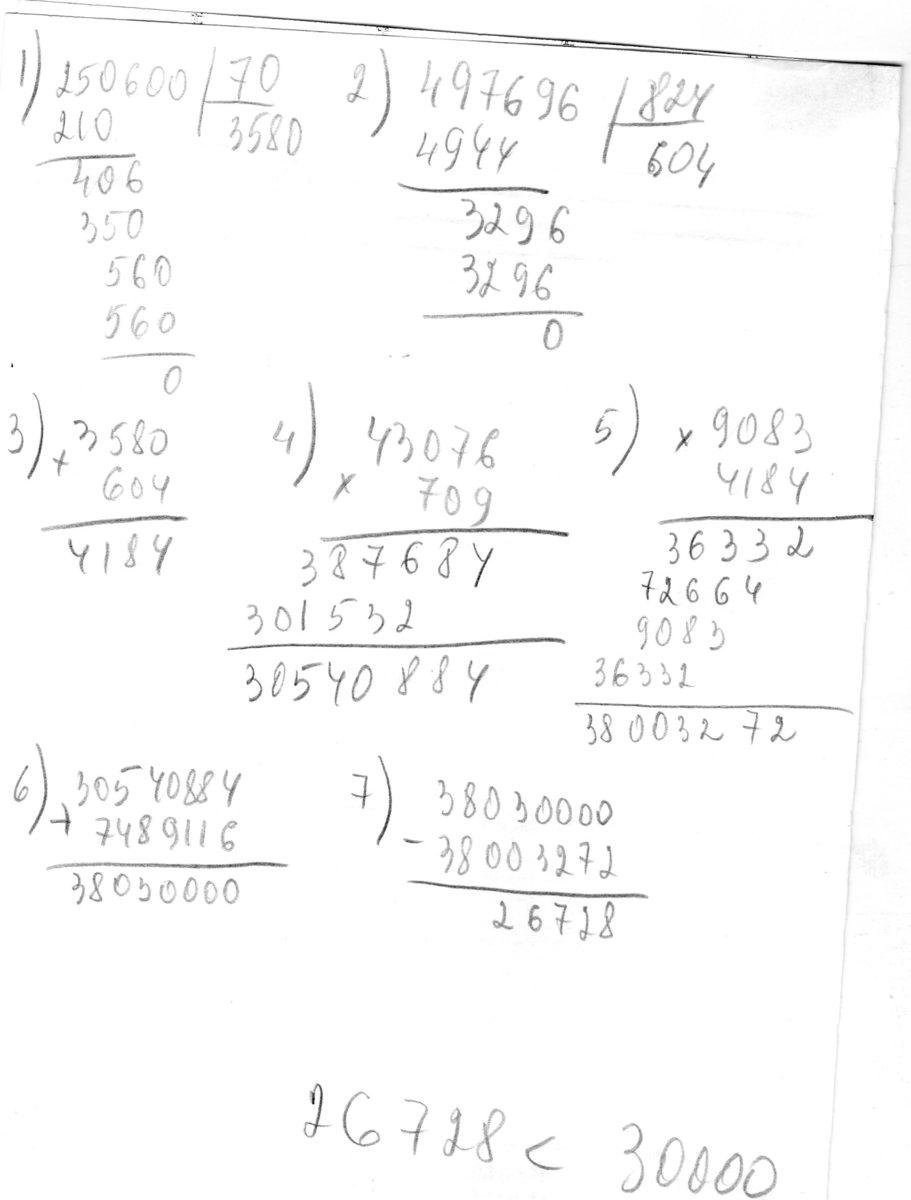 1) 250600 | 70
210 3580
406
350
560
560
0
2) 497696 | 824
4944 604
3296
3296
0
3) + 3580
604
4184
4) 43076
× 709
387684
301532
30540884
5) × 9083
4184
36332
72664
9083
36332
38003272
6) + 30540884
7489116
38030000
7) - 38030000
38003272
26728
26728 < 30000